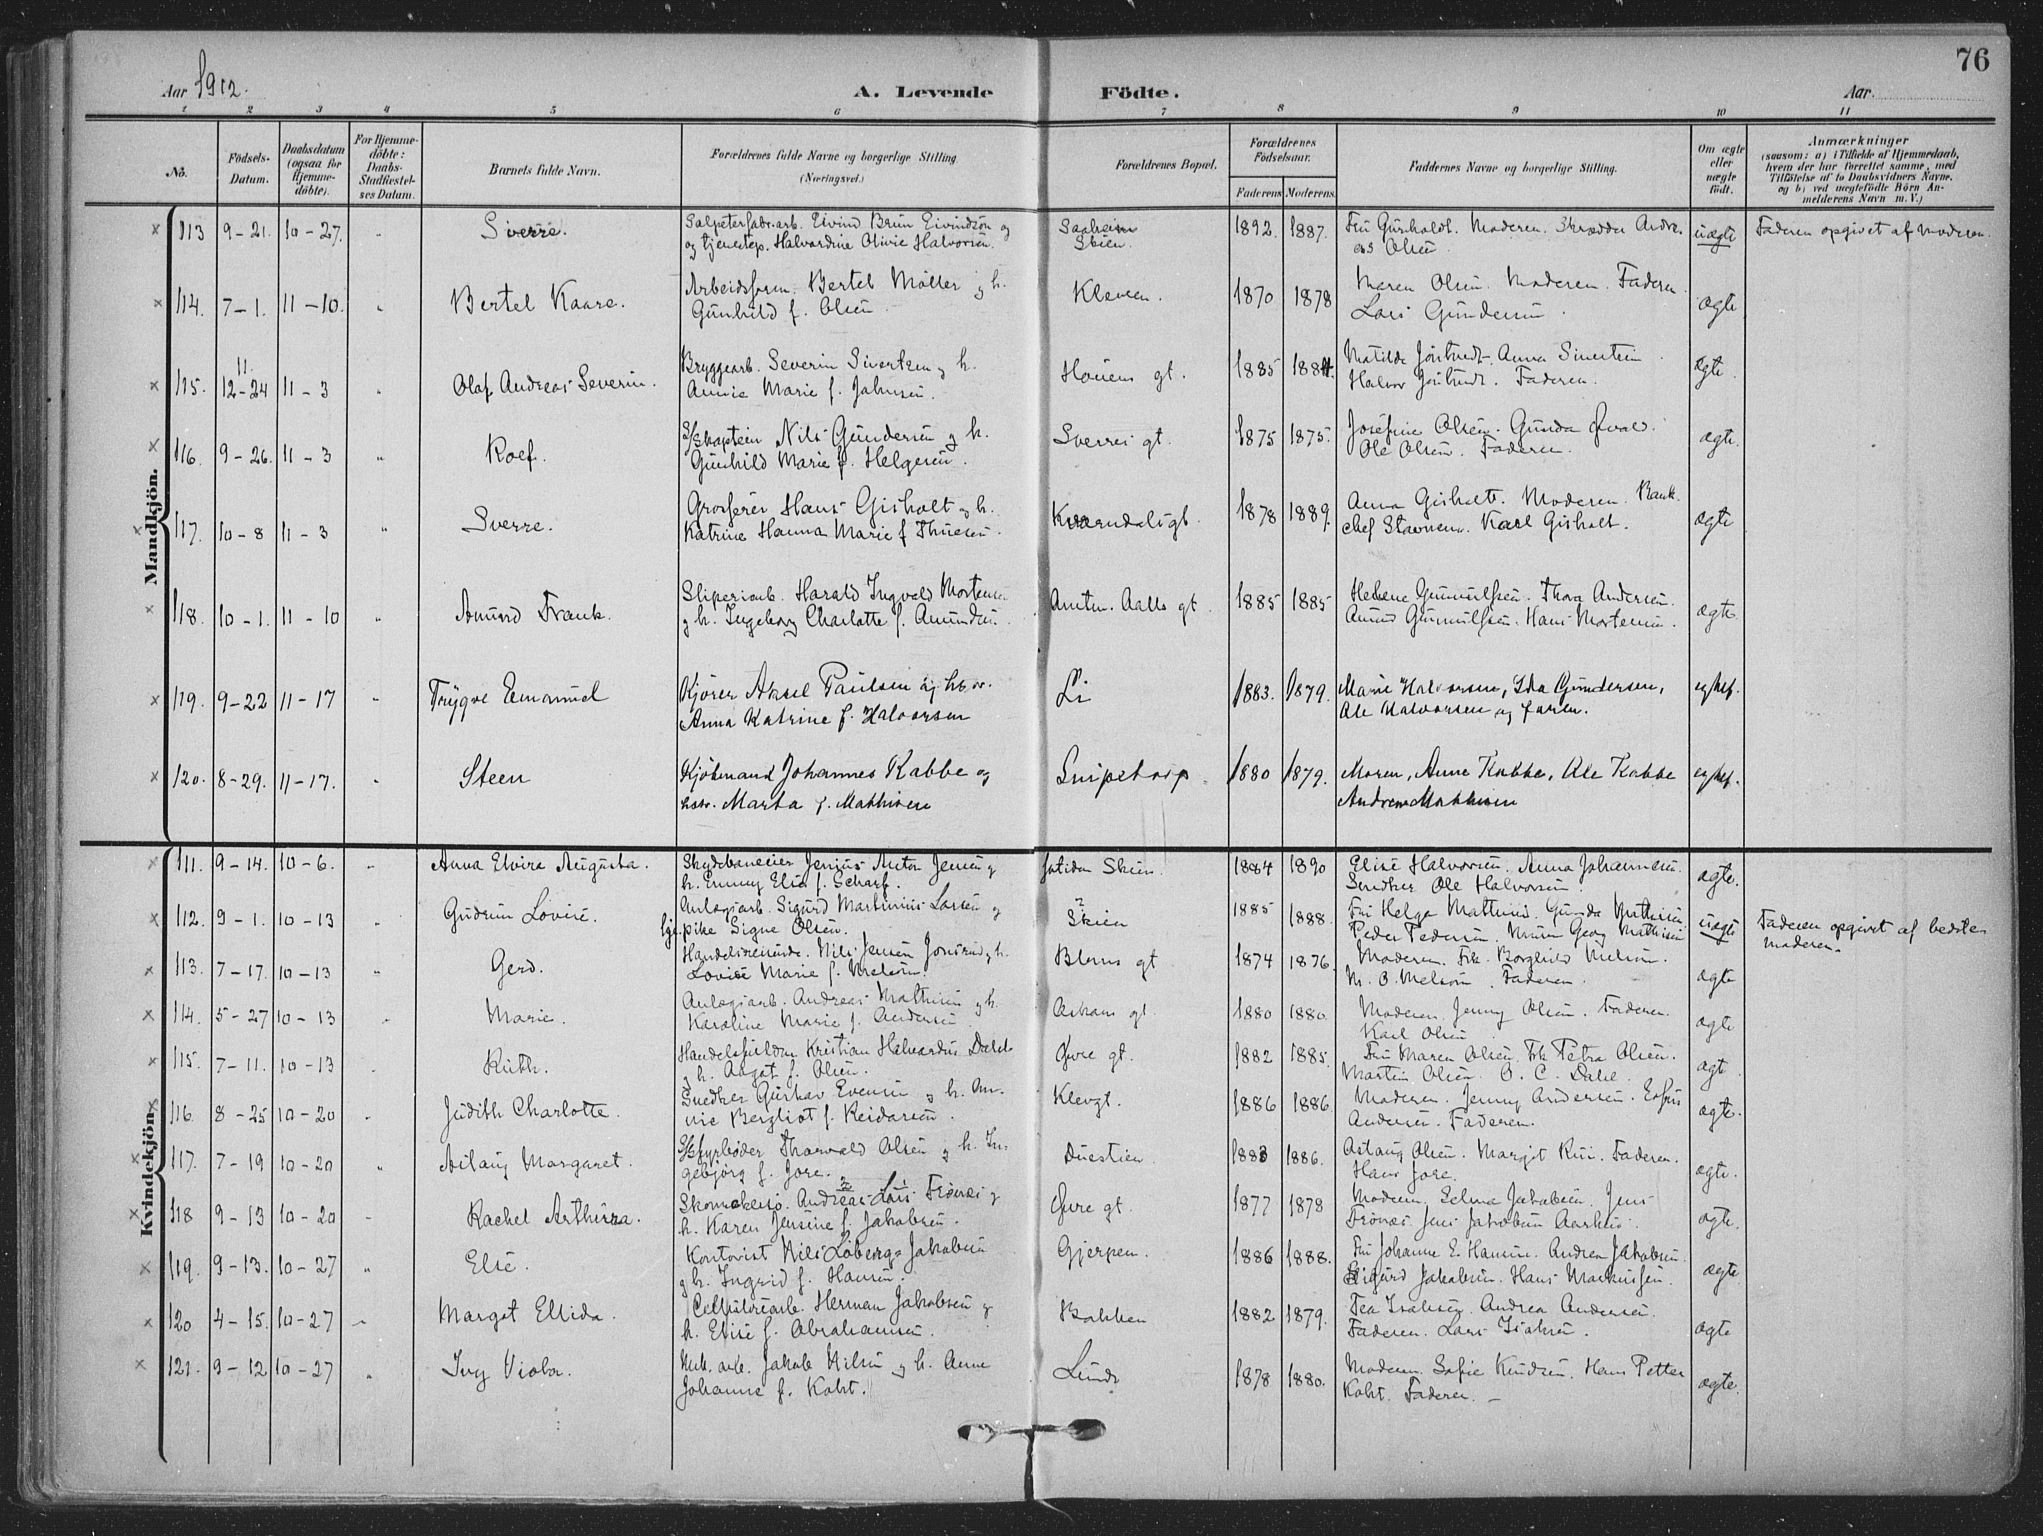 76
Aar 1912.
A. Levende Födte.
Aar
1 2 3 4 5 6 7 8 9 10 11
No. Födsels-Datum. Daabsdatum (ogsaa for Hjemme-döbte). For Hjemme-döbte: Daabs-Stadfæstel-ses Datum. Barnets fulde Navn. Forældrenes fulde Navne og borgerlige Stilling (Næringsvei.) Forældrenes Bopæl. Forældrenes Födselsaar. Faderens Moderens Faddernes Navne og borgerlige Stilling. Om ægte eller uægte födt. Anmærkninger (saasom: a) i Tilfælde af Hjemmedaab, hvem der har forrettet samme, med Tilföielse af to Daabsvidners Navne, og b) ved uægtefödte Börn An-melderens Navn m. V.)
Mandkjön.
113 9-21. 10-27. " Sverre. Salpeterfabr.arb. Eivind Brun Eivindsön og Saaheim 1892. 1887. Fru Gunhold. Moderen. Skrædder Andre- uægte Faderen opgivet af moderen.
og tjenestep. Halvardine Olivie Halvorsen. Skien. as Olsen.
114. 7-1. 11-10. " Bertel Kaare. Arbeidsform. Bertel Möller og h. Kleven. 1870 1878 Maren Olsen. Moderen. Faderen. ægte
Gunhild f. Olsen. Lars Gundersen.
115. 11. 12-24 11-3 " Olaf Andreas Severin. Bryggearb. Severin Sivertsen og h. Houens gt. 1885 1884. Matilde Anna Sivertsen. ægte.
Annie Marie f. Johnsen. Halvor Faderen.
116. 9-26. 11-3 " Roef. S/Skaptein Nils Gundersen og h. Sverres gt. 1875 1875. Josefine Olsen. Gunda ægte.
Gunhild Marie f. Helgesen. Ole Olsen. Faderen.
117. 10-8 11-3 " Sverre. Grosserer Hans Gisholt og h. Kverndalsgt. 1878 1889. Anna Gisholt. Moderen. Bank- ægte
Katrine Hanna Marie f Thuesen. chef Stavnem. Karl Gisholt.
118. 10-1. 11-10 " Amund Frank. Sliperiarb. Harald Ingvald Mortensen Amtm. Aalls gt. 1885 1885 Helene Gunnulfsen. Thora Andersen. ægte.
og h. Ingeborg Charlotte f. Amundsen. Amund Gunnulfsen. Hans Mortensen.
119. 9-22 11-17 " Trygve Emanuel Kjörer Aksel Paulsen og hstr. Li 1883. 1879. Marie Halvorsen, Ida Gundersen, egtef.
Anna Katrine f. Halvorsen Ole Halvorsen og faren.
120. 8-29. 11-17. " Steen Kjöbmand Johannes Kabbe og Snipetorp 1880 1879. Moren, Anne Kabbe, Ole Kabbe egtef.
hstr. Marta f. Mathisen Andreas Mathisen
Kvindekjön.
111. 9-14. 10-6. " Anna Elvira Augusta. Skydebaneeier Jenius Anton Jensen og Skien. 1884 1890 Elise Halvorsen. Anna Johannesen. ægte.
h. Emmy Elise f. Scharf. Snedker Ole Halvorsen.
112. 9-1. 10-13 " Gudrun Lovise. Anlægsarb. Sigurd Martinius Larsen og Skien 1885 1888. Fru Helga Mathisen. Gunda Mathisen uægte Faderen opgivet af bedste-
tje.pike Signe Olsen. Peder Pedersen. Georg Mathisen moderen.
113. 7-17. 10-13 " Gerd. Nils Jensen og h. Bloms gt 1874 1876. Moderen. Frk. Borghild Nielsen. ægte
Lovise Marie f. Nielsen. N. O. Nielsen. Faderen.
114. 5-27 10-13 " Marie. Anlægsarb. Andreas Mathisen og h. gt. 1880 1880. Moderen. Jenny Olsen. Faderen. ægte
Karoline Marie f. Andersen Karl Olsen
115. 7-11. 10-13 " Ruth. Kristian Halvardus Dahl Övre gt. 1882 1885. Fru Maren Olsen. Frk Petra Olsen. ægt.
og h. Aagot f. Olsen. Martin Olsen. O. C. Dahl.
116. 8-25 10-20 " Judith Charlotte. Snedker Gustav Evensen og h. An- Klevgt. 1886 1886. Moderen. Jenny Andersen. ægte.
nie Bergliot f. Reidarsen. Andersen. Faderen.
117. 7-19 10-20 " Aslaug Margaret. S/Sfyrböder Thorvald Olsen og h. In- Duestien 1883 1886. Aslaug Olsen. Margit Faderen. ægte.
gebjörg f. Jore. Hans Jore.
118 9-13 10-20 " Rachel Arthina. Andreas Lars Trönæs og Övre gt. 1877 1878 Moderen. Selma Jakobsen. Jens ægte.
h. Karen Jensine f. Jakobsen. Trönæs. Jens Jakobsen
119. 9-13. 10-27 " Else. Kontorist Nils Löberg Jakobsen Gjerpen. 1886 1888. Fru Johanne E. Hansen. Andrea Jakobsen. ægte
og h. Ingrid f. Hansen. Sigurd Jakobsen. Hans Markussen.
120 4-15. 10-27 " Margot Ellida. Cellulosearb. Herman Jakobsen og Bakken 1882 1879. Tea Isaksen. Andrea Andersen. ægte
h. Elise f. Abrahamsen. Faderen. Lars Isaksen.
121. 9-12 10-27 " Ivy Viola. Jakob Nilsen og h. Anne Lunde 1878 1880. Moderen. Sofie Knudsen. Hans Petter ægte.
Johanne f. Kobt. Kobt. Faderen.